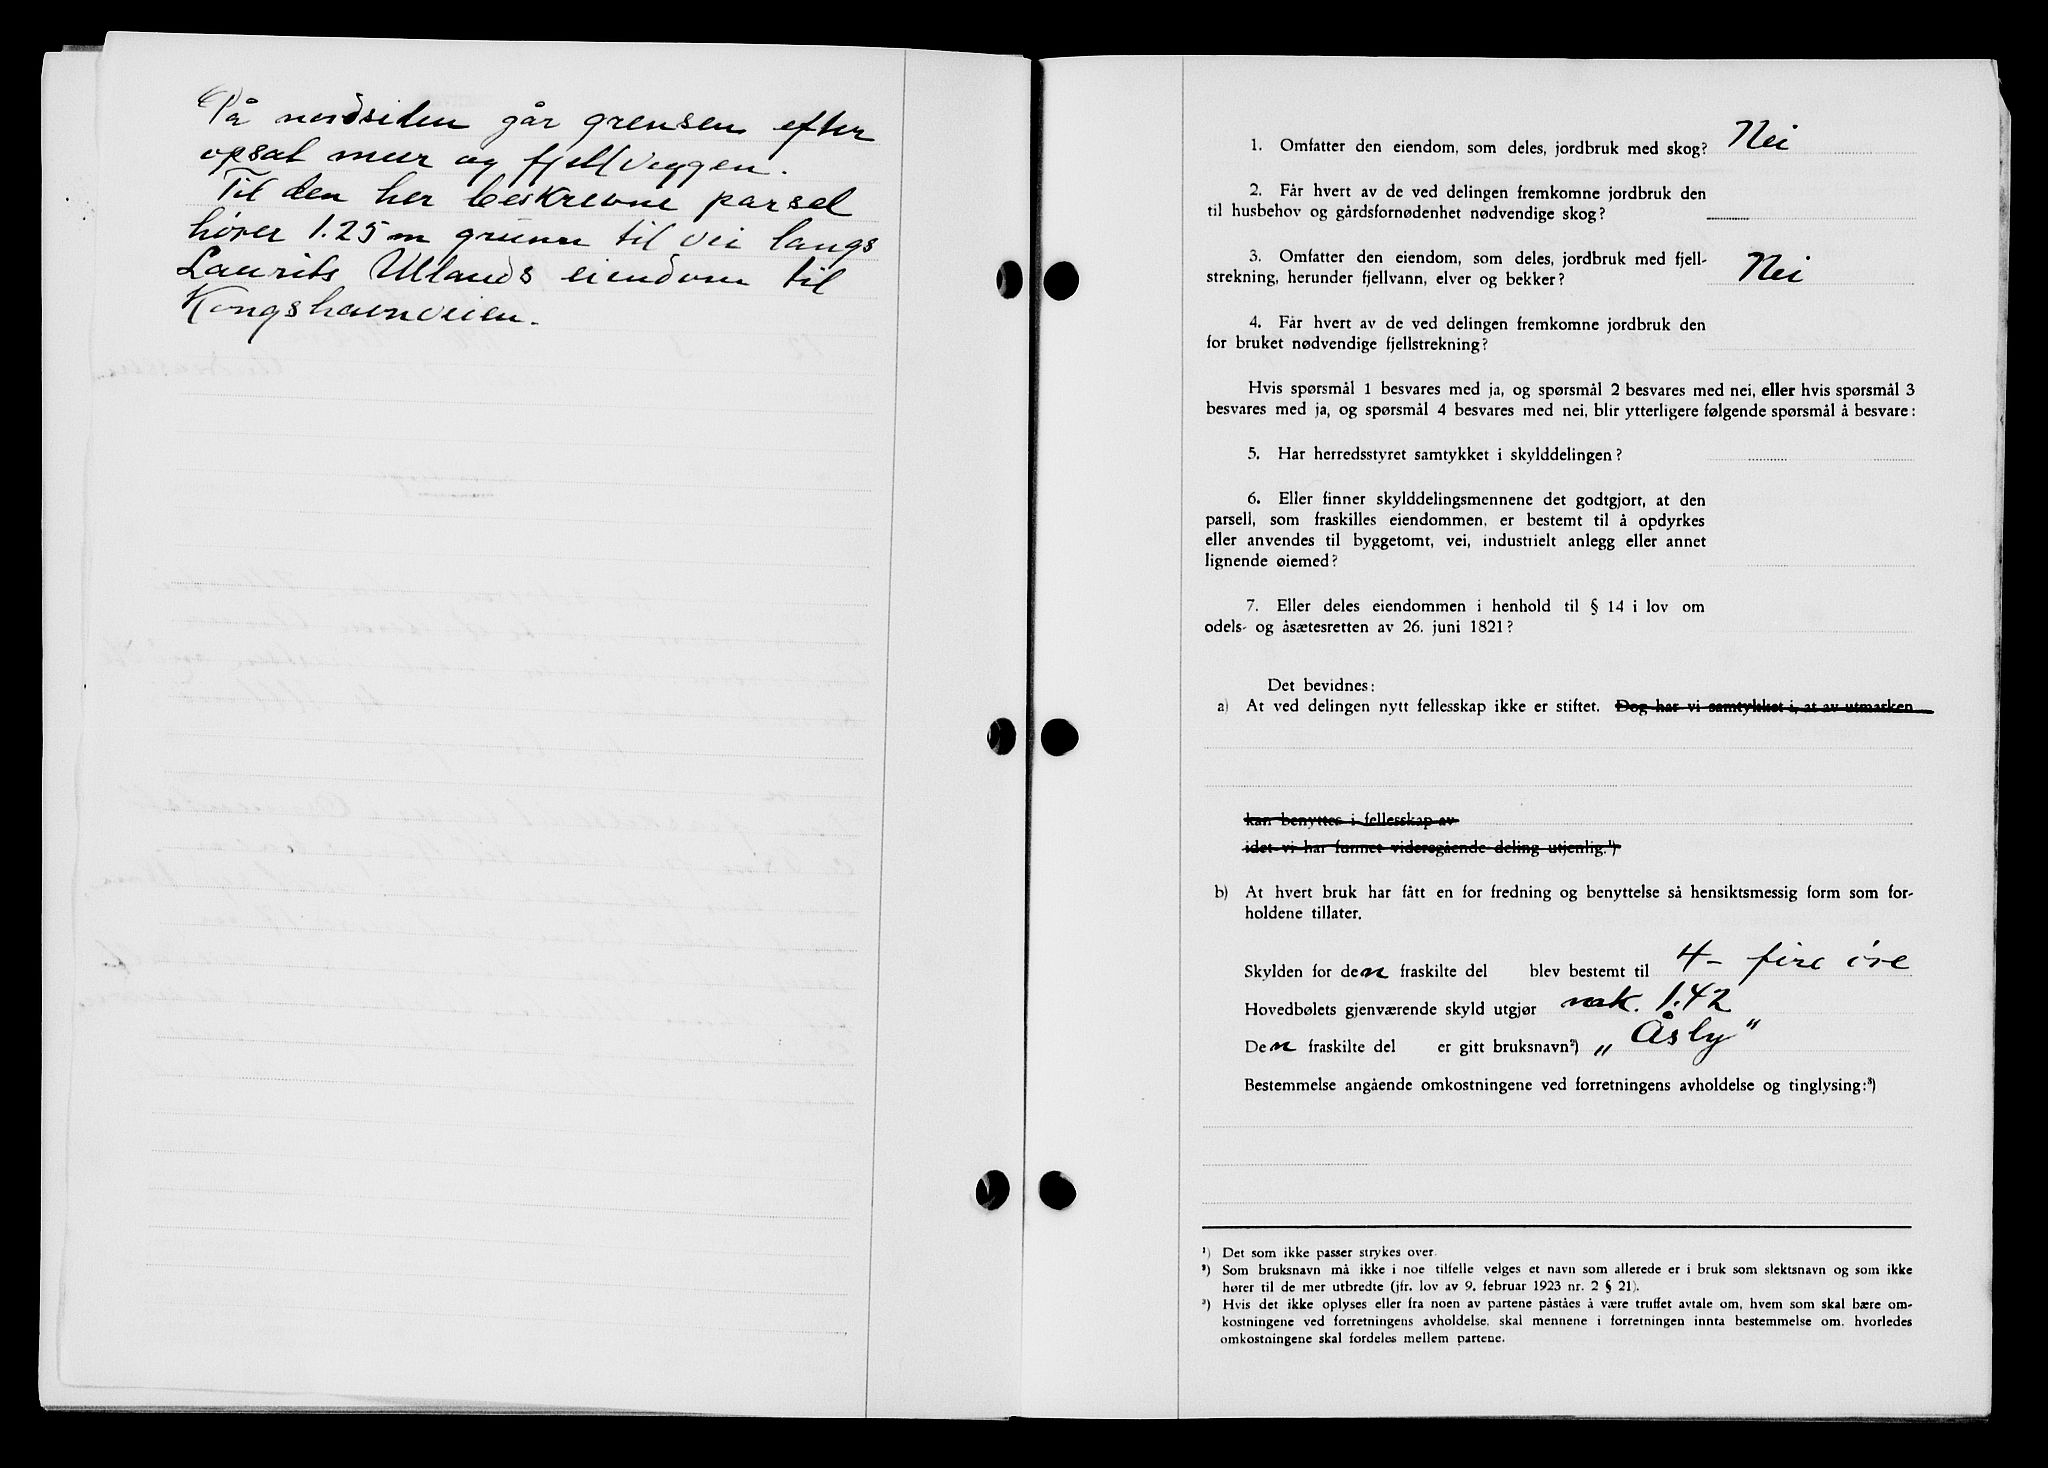 På nordsiden går grensen efter
opsat mur og fjellveggen.
Til den her beskrevne parsel
hører 1.25 m grunn til vei langs
Laurits Ullands eiendom til
Kongshavnveien.
1. Omfatter den eiendom, som deles, jordbruk med skog? Nei
2. Får hvert av de ved delingen fremkomne jordbruk den
til husbehov og gårdsfornødenhet nødvendige skog?
3. Omfatter den eiendom, som deles, jordbruk med fjell-
strekning, herunder fjellvann, elver og bekker? Nei
4. Får hvert av de ved delingen fremkomne jordbruk den
for bruket nødvendige fjellstrekning?
Hvis spørsmål 1 besvares med ja, og spørsmål 2 besvares med nei, eller hvis spørsmål 3
besvares med ja, og spørsmål 4 besvares med nei, blir ytterligere følgende spørsmål å besvare:
5. Har herredsstyret samtykket i skylddelingen?
6. Eller finner skylddelingsmennene det godtgjort, at den
parsell, som fraskilles eiendommen, er bestemt til å opdyrkes
eller anvendes til byggetomt, vei, industrielt anlegg eller annet
lignende øiemed?
7. Eller deles eiendommen i henhold til § 14 i lov om
odels- og åsætesretten av 26. juni 1821?
Det bevidnes:
a) At ved delingen nytt fellesskap ikke er stiftet. Dog har vi samtykket i, at av utmarken
kan benyttes i fellesskap av
idet vi har funnet videregående deling utjenlig.¹)
b) At hvert bruk har fått en for fredning og benyttelse så hensiktsmessig form som for-
holdene tillater.
Skylden for den fraskilte del blev bestemt til 4 – fire øre
Hovedbølets gjenværende skyld utgjør mrk. 1.42
Den fraskilte del er gitt bruksnavn²) „Åsly"
Bestemmelse angående omkostningene ved forretningens avholdelse og tinglysing:³)
¹) Det som ikke passer strykes over.
²) Som bruksnavn må ikke i noe tilfelle velges et navn som allerede er i bruk som slektsnavn og som ikke
hører til de mer utbredte (jfr. lov av 9. februar 1923 nr. 2 § 21).
³) Hvis det ikke oplyses eller fra noen av partene påståes å være truffet avtale om, hvem som skal bære om-
kostningene ved forretningens avholdelse, skal mennene i forretningen innta bestemmelse om, hvorledes
omkostningene skal fordeles mellem partene.